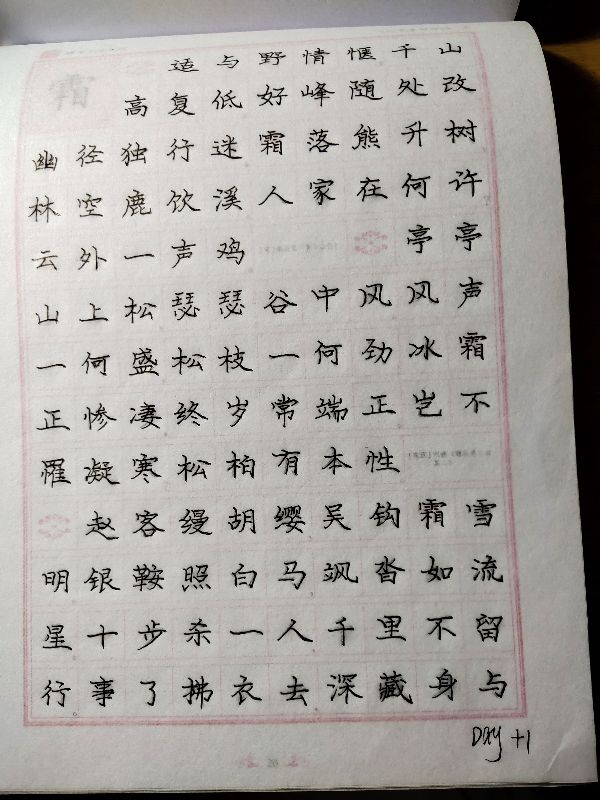 霜
适与野情惬千山
高复低好峰随处改
幽径独行迷霜落熊升树
林空鹿饮溪人家在何许
云外一声鸡 亭亭
山上松瑟瑟谷中风风声
一何盛松枝一何劲冰霜
正惨凄终岁常端正岂不
罹凝寒松柏有本性
赵客缦胡缨吴钩霜雪
明银鞍照白马飒沓如流
星十步杀一人千里不留
行事了拂衣去深藏身与
Day +1
20